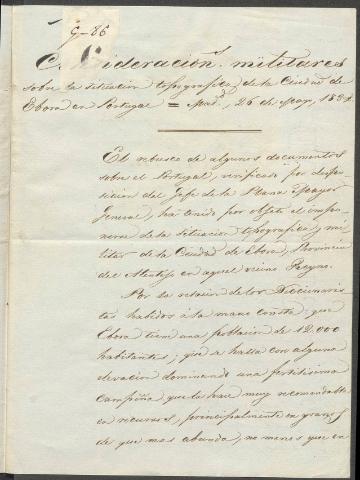 G-86
Consideracion.s militares
sobre la situacion topografica de la Ciudad de
Ebora en Portugal = Mad.d 26 de May. 183
El rebusco de algunos documentos
sobre el Portugal, verificado por dispo-
sicion del Gefe de la Plana Mayor
General, ha tenido por objeto el
de la situacion topografica y mi
litar de la Ciudad de Ebora, Provincia
del Alentejo en aquel vecino Reyno.
Por la relacion de los Diccionaris
tas habidos á la mano consta, que
Ebora tiene una poblacion de 12.000
habitantes; que se halla con alguna
elevacion dominando una fertilisima
Campiña que la hace muy recomendable
en recursos, principalmente en granos
de que mas abunda, no menos que en